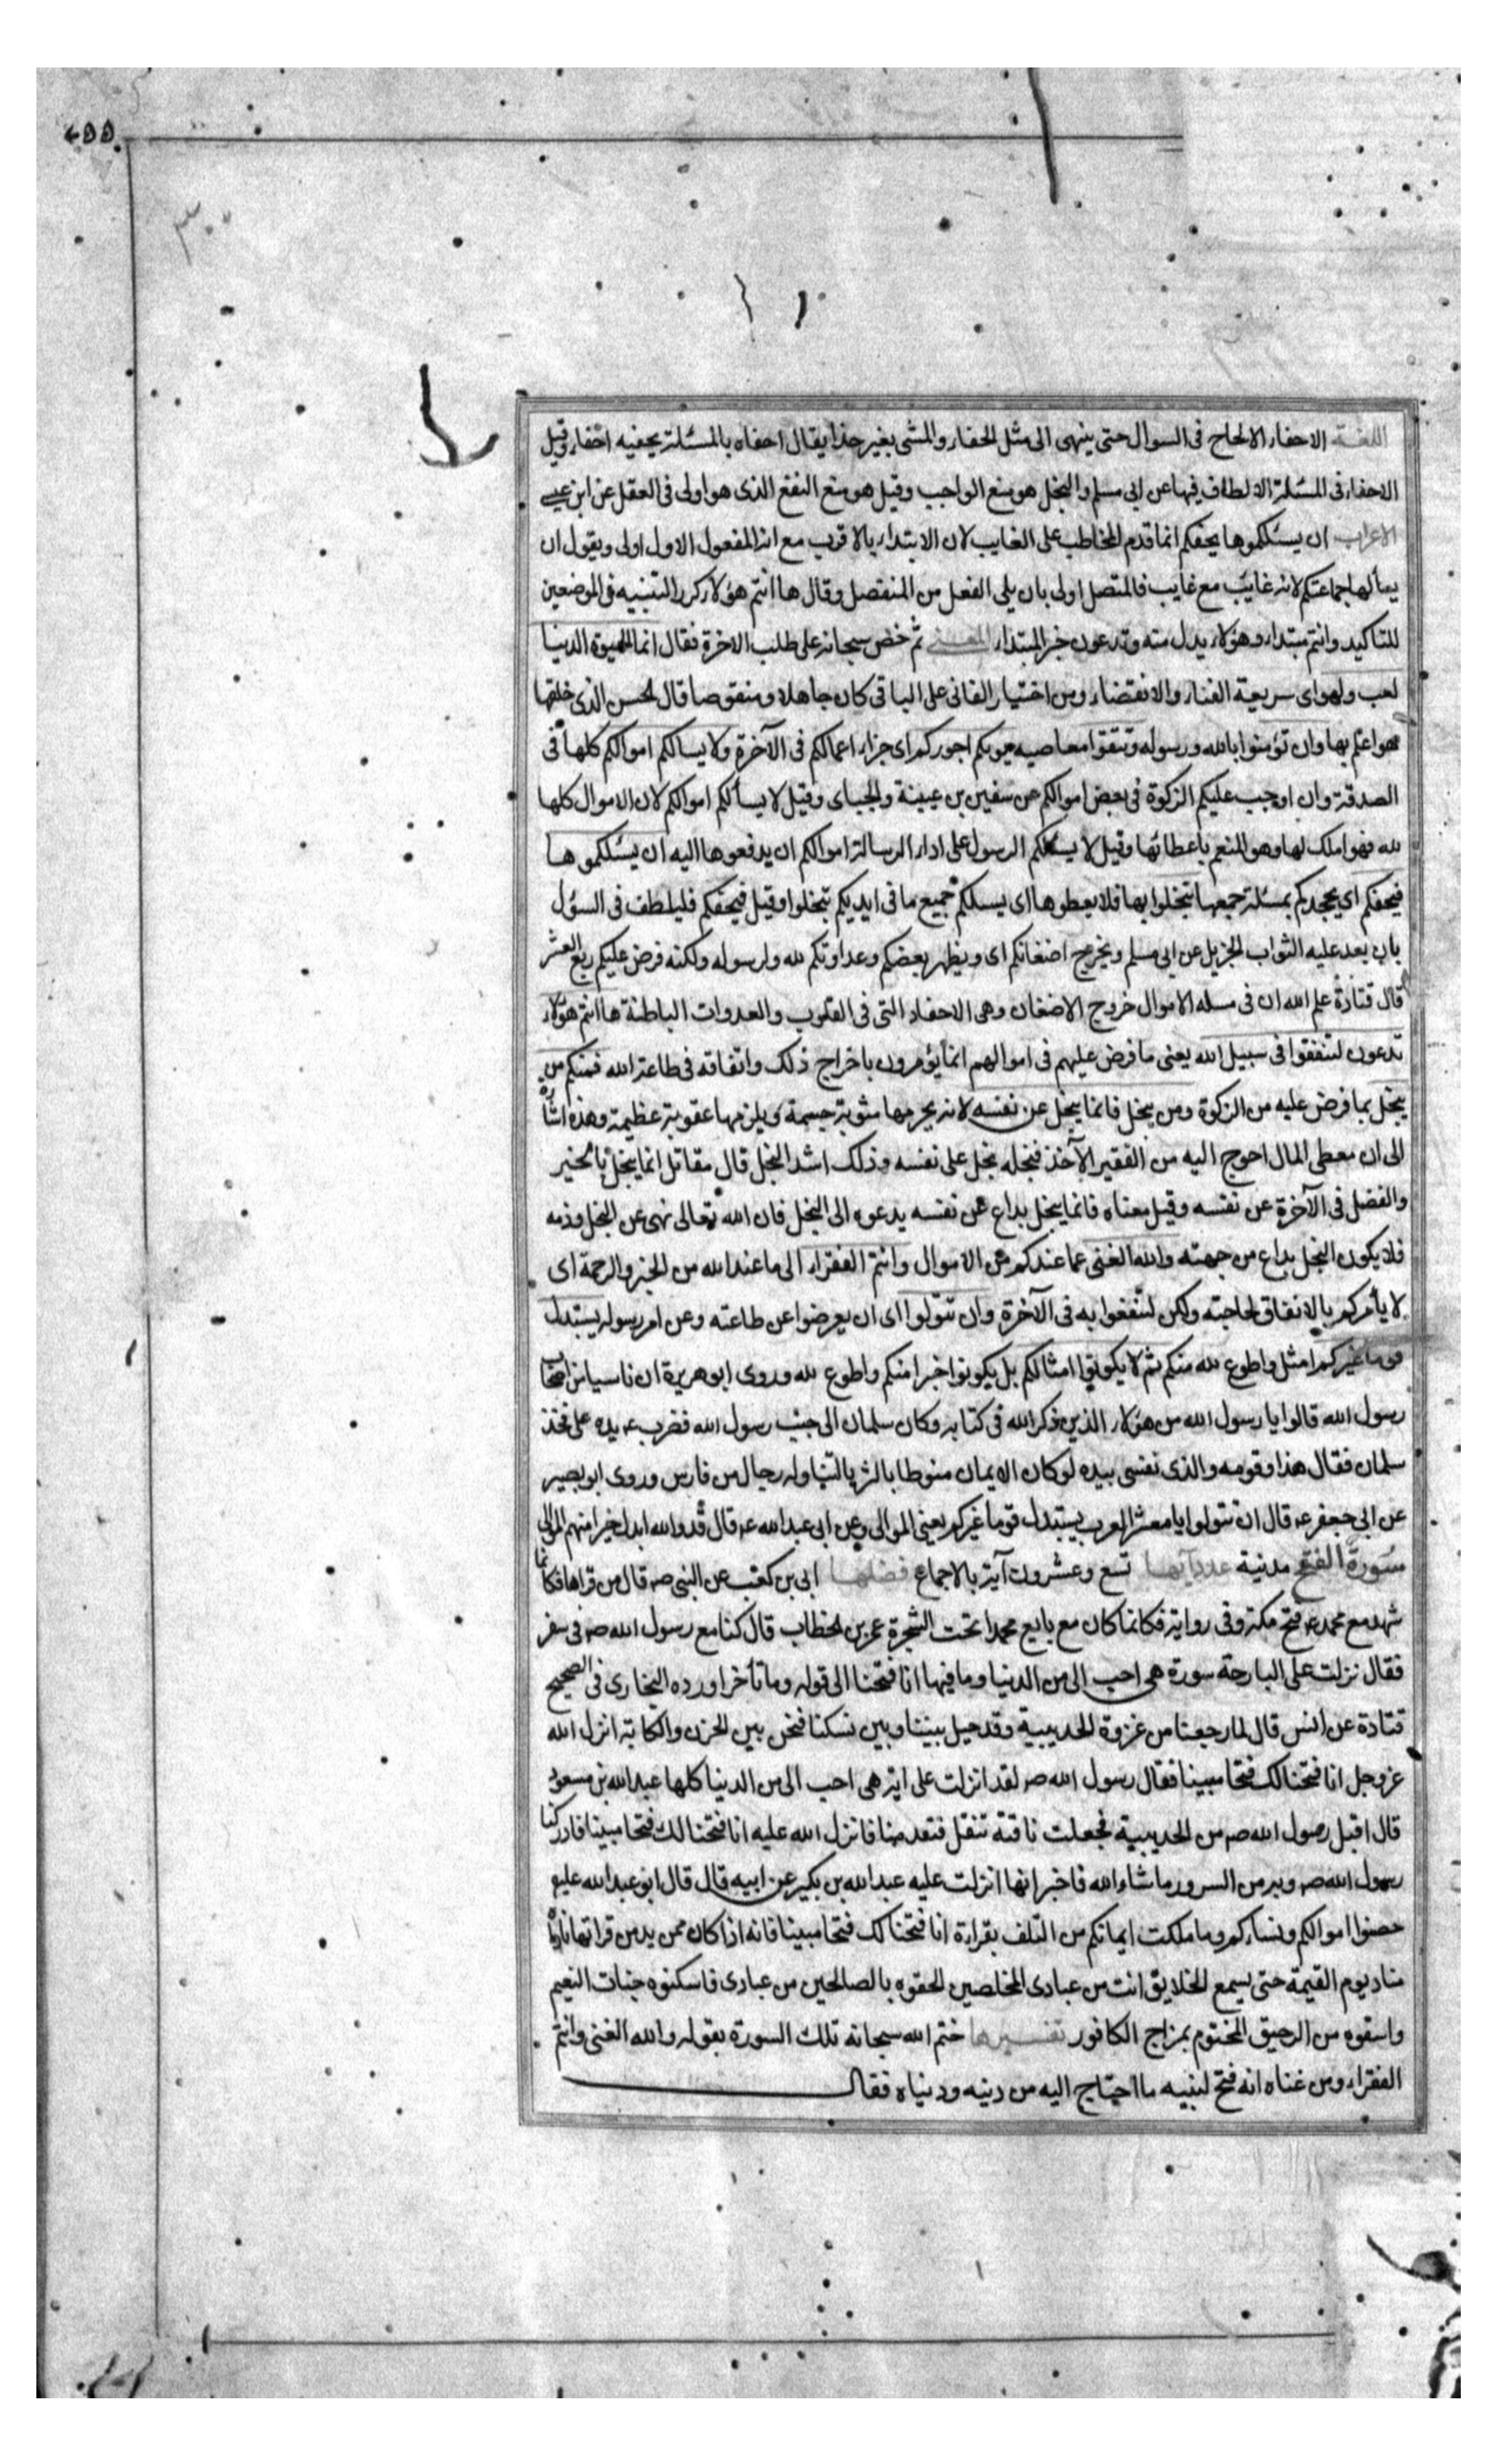 ٢٥٥
٣٠٠
اللغة الاحفاء الالحاح فى السوال حتى ينهى الى مثل الحفاء والمشى بغير حذا يقال احفاه بالمسئلة يحفيه احفاء وقيل
الاحفاء فى المسئلة الالطاف فيها عن ابى مسلم والبخل هو منع الواجب وقيل هو منع النفع الذى هو اولى فى العقل عن ابن عيسى
الاعراب ان يسئلكموها يحفكم انما قدم المخاطب على الغايب لان الابتداء بالاقرب مع انه المفعول الاول اولى ويقول ان
يسألها جماعتكم لانه غائب مع غايب فالمتصل اولى بان يلى الفعل من المنفصل وقال ها انتم هؤلاء كرر التنبيه فى الموضعين
للتاكيد وانتم مبتداء وهؤلاء بدل منه وتدعون خبر المبتداء المعنى ثم خض سبحانه على طلب الاخرة فقال انما الحيوة الدنيا
لعب ولهو اى سريعة الفناء والانقضاء ومن اختيار الفانى على الباقى كان جاهلا ومنقوصا قال الحسن الذى خلقها
هو اعلم بها وان تؤمنوا بالله ورسوله وتتقوا معاصيه يوتكم اجوركم اى جزاء اعمالكم فى الآخرة ولا يسالكم اموالكم كلها فى
الصدقة وان اوجب عليكم الزكوة فى بعض اموالكم عن سفين بن عيينة والجباى وقيل لا يسألكم اموالكم لان الاموال كلها
لله فهو املك لها وهو المنعم باعطائها وقيل لا يسئلكم الرسول على اداء الرسالة اموالكم ان يدفعوها اليه ان يسئلكموها
فيحفكم اى يجهدكم بمسئلة جميعها تبخلوا بها فلا يعطوها اى يسلكم جميع ما فى ايديكم تبخلوا وقيل فيحفكم فليلطف فى السؤل
بان يعد عليه الثواب الجزيل عن ابى مسلم ويخرج اضغانكم اى ويظهر بعضكم وعداوتكم لله ولرسوله ولكنه فرض عليكم ربع العشر
قال قتادة علم الله ان فى مسله الاموال خروج الاضغان وهى الاحقاد التى فى القلوب والعدوات الباطنة ها انتم هؤلاء
تدعون لتنفقوا فى سبيل الله يعنى ما فرض عليهم فى اموالهم انما يؤمرون باخراج ذلك وانفاقه فى طاعة الله فمنكم من
يبخل بما فرض عليه من الزكوة ومن يبخل فانما يبخل عن نفسه لانه يحرمها مثوبة جسيمة ويلزمها عقوبة عظيمة وهذه اشارة
الى ان معطى المال احوج اليه من الفقير الآخذ فبخله بخل على نفسه وذلك اشد البخل قال مقاتل انما يبخل بالخير
والفضل فى الآخرة عن نفسه وقيل معناه فانما يبخل بداع عن نفسه يدعوه الى البخل فان الله تعالى نهى عن البخل وذمه
فلا يكون البخل بداع من جهته والله الغنى عما عندكم من الاموال وانتم الفقراء الى ما عند الله من الخير والرحمة اى
لا يأمركم بالانفاق لحاجته ولكن لتنفعوا به فى الآخرة وان تتولوا اى ان يعرضوا عن طاعته وعن امر رسوله يستبدل
قوما غيركم امثل واطوع لله منكم ثم لا يكونوا امثالكم بل يكونوا خيرا منكم واطوع لله وروى ابو هريرة ان ناسا من اصحاب
رسول الله قالوا يا رسول الله من هؤلاء الذين ذكر الله فى كتابه وكان سلمان الى جنب رسول الله فضرب ع يده على فخذ
سلمان فقال هذا وقومه والذى نفسى بيده لو كان الايمان منوطا بالثريا لتناوله رجال من فارس وروى ابو بصير
عن ابى جعفر ع قال ان تتولوا يا معشر العرب يستبدل قوما غيركم يعنى الموالى وعن ابى عبد الله ع قال قد والله ابدل خيرا منهم الموالى
سورة الفتح مدنية عدد آيها تسع وعشرون آية بالاجماع فضلها ابى بن كعب عن النبى ص قال من قراها فكانما
شهد مع محمد ع فتح مكة وفى رواية فكانما كان مع بايع محمدا تحت الشجرة عمر بن الخطاب قال كنا مع رسول الله ص فى سفر
فقال نزلت على البارحة سورة هى احب الى من الدنيا وما فيها انا فتحنا الى قوله وما تأخر اورده البخارى فى الصحيح
قتادة عن انس قال لما رجعنا من غزوة الحديبية وقد حيل بيننا وبين نسكنا فنحن بين الحزن والكابة انزل الله
عز وجل انا فتحنا لك فتحا مبينا فقال رسول الله ص لقد انزلت على اية هى احب الى من الدنيا كلها عبد الله بن مسعود
قال اقبل رسول الله ص من الحديبية فجعلت ناقته تثقل فتقدمنا فانزل الله عليه انا فتحنا لك فتحا مبينا فادركنا
رسول الله ص وبه من السرور ما شاء الله فاخبر انها انزلت عليه عبد الله بن بكير عن ابيه قال قال ابو عبد الله عليه
حصنوا اموالكم ونساءكم وما ملكت ايمانكم من التلف بقراءة انا فتحنا لك فتحا مبينا فانه اذا كان ممن يدمن قراتها نادا
مناد يوم القيمة حتى يسمع الخلايق انت من عبادى المخلصين الحقوه بالصالحين من عبادى فاسكنوه جنات النعيم
واسقوه من الرحيق المختوم بمزاج الكافور تفسيرها ختم الله سبحانه تلك السورة بقوله والله الغنى وانتم
الفقراء ومن غناه انه فتح لنبيه ما احتاج اليه من دينه ودنياه فقال